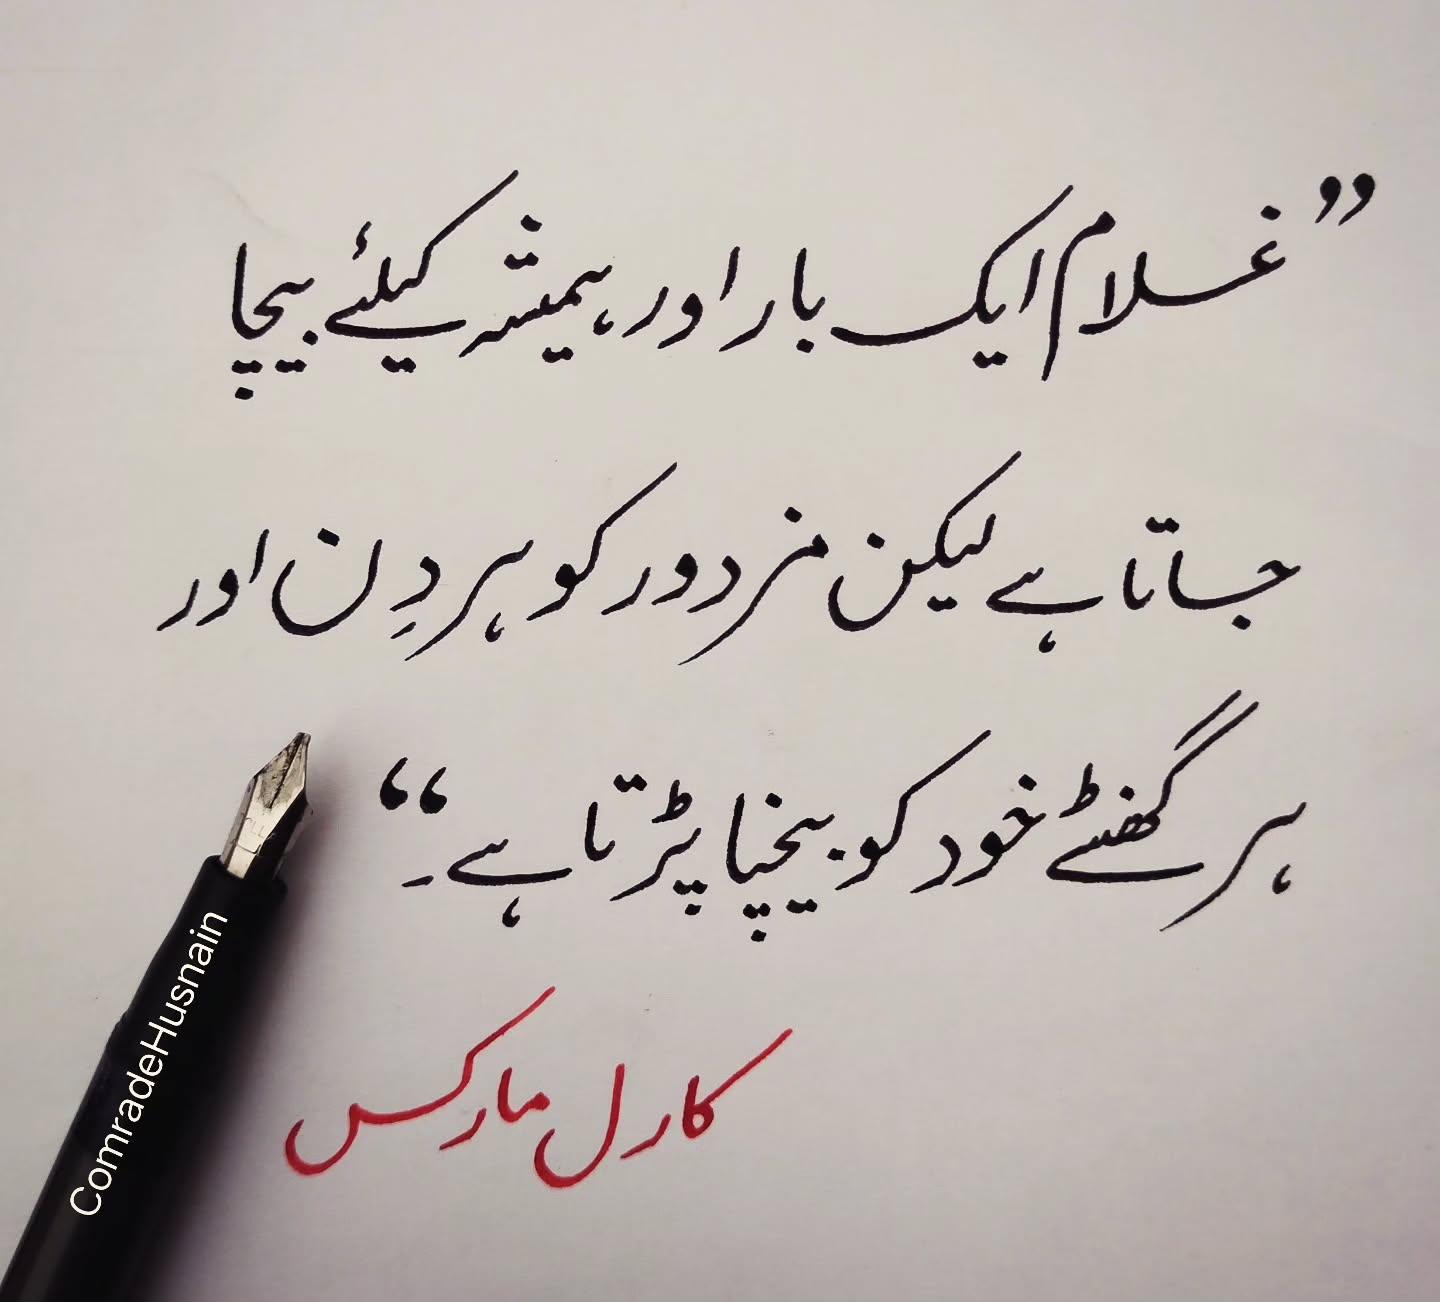 ”غلام ایک بار اور ہمیشہ کیلئے بیچا
جاتا ہے لیکن مزدور کو ہر دِن اور
ہر گھنٹے خود کو بیچنا پڑتا ہے۔“
کارل مارکس
ComradeHusnain